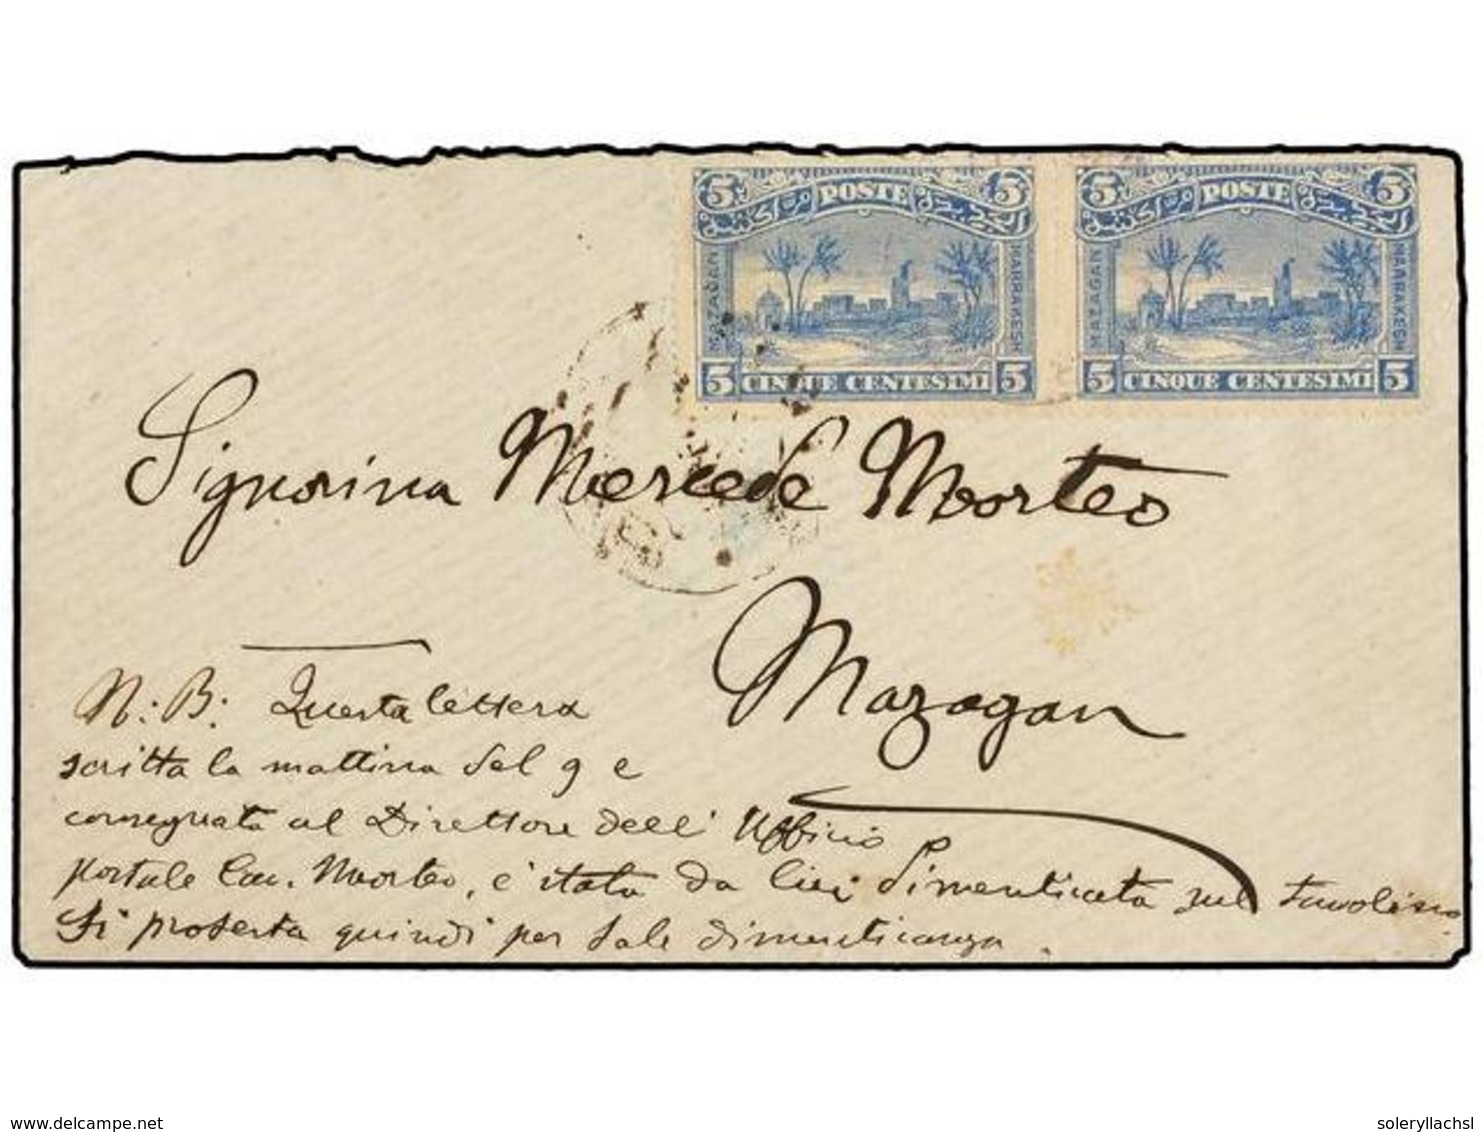 5 POSTE 5 5 POSTE 5
MAZAGAN MARRAKESH MAZAGAN MARRAKESH
5 CINQUE CENTESIMI 5 5 CINQUE CENTESIMI 5
Signorina Mercede Morteo
Mazagan
N.B: Questa lettera
scritta la mattina del 9 e
consegnata al Direttore dell' Ufficio
postale Cav. Morteo, è stata da lui dimenticata sul tavolino
Si protesta quindi per tale dimenticanza.
delcampe.net
soleryllachsl